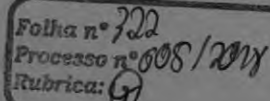 Folha nº 322
Processo nº 608/2018
Rubrica: